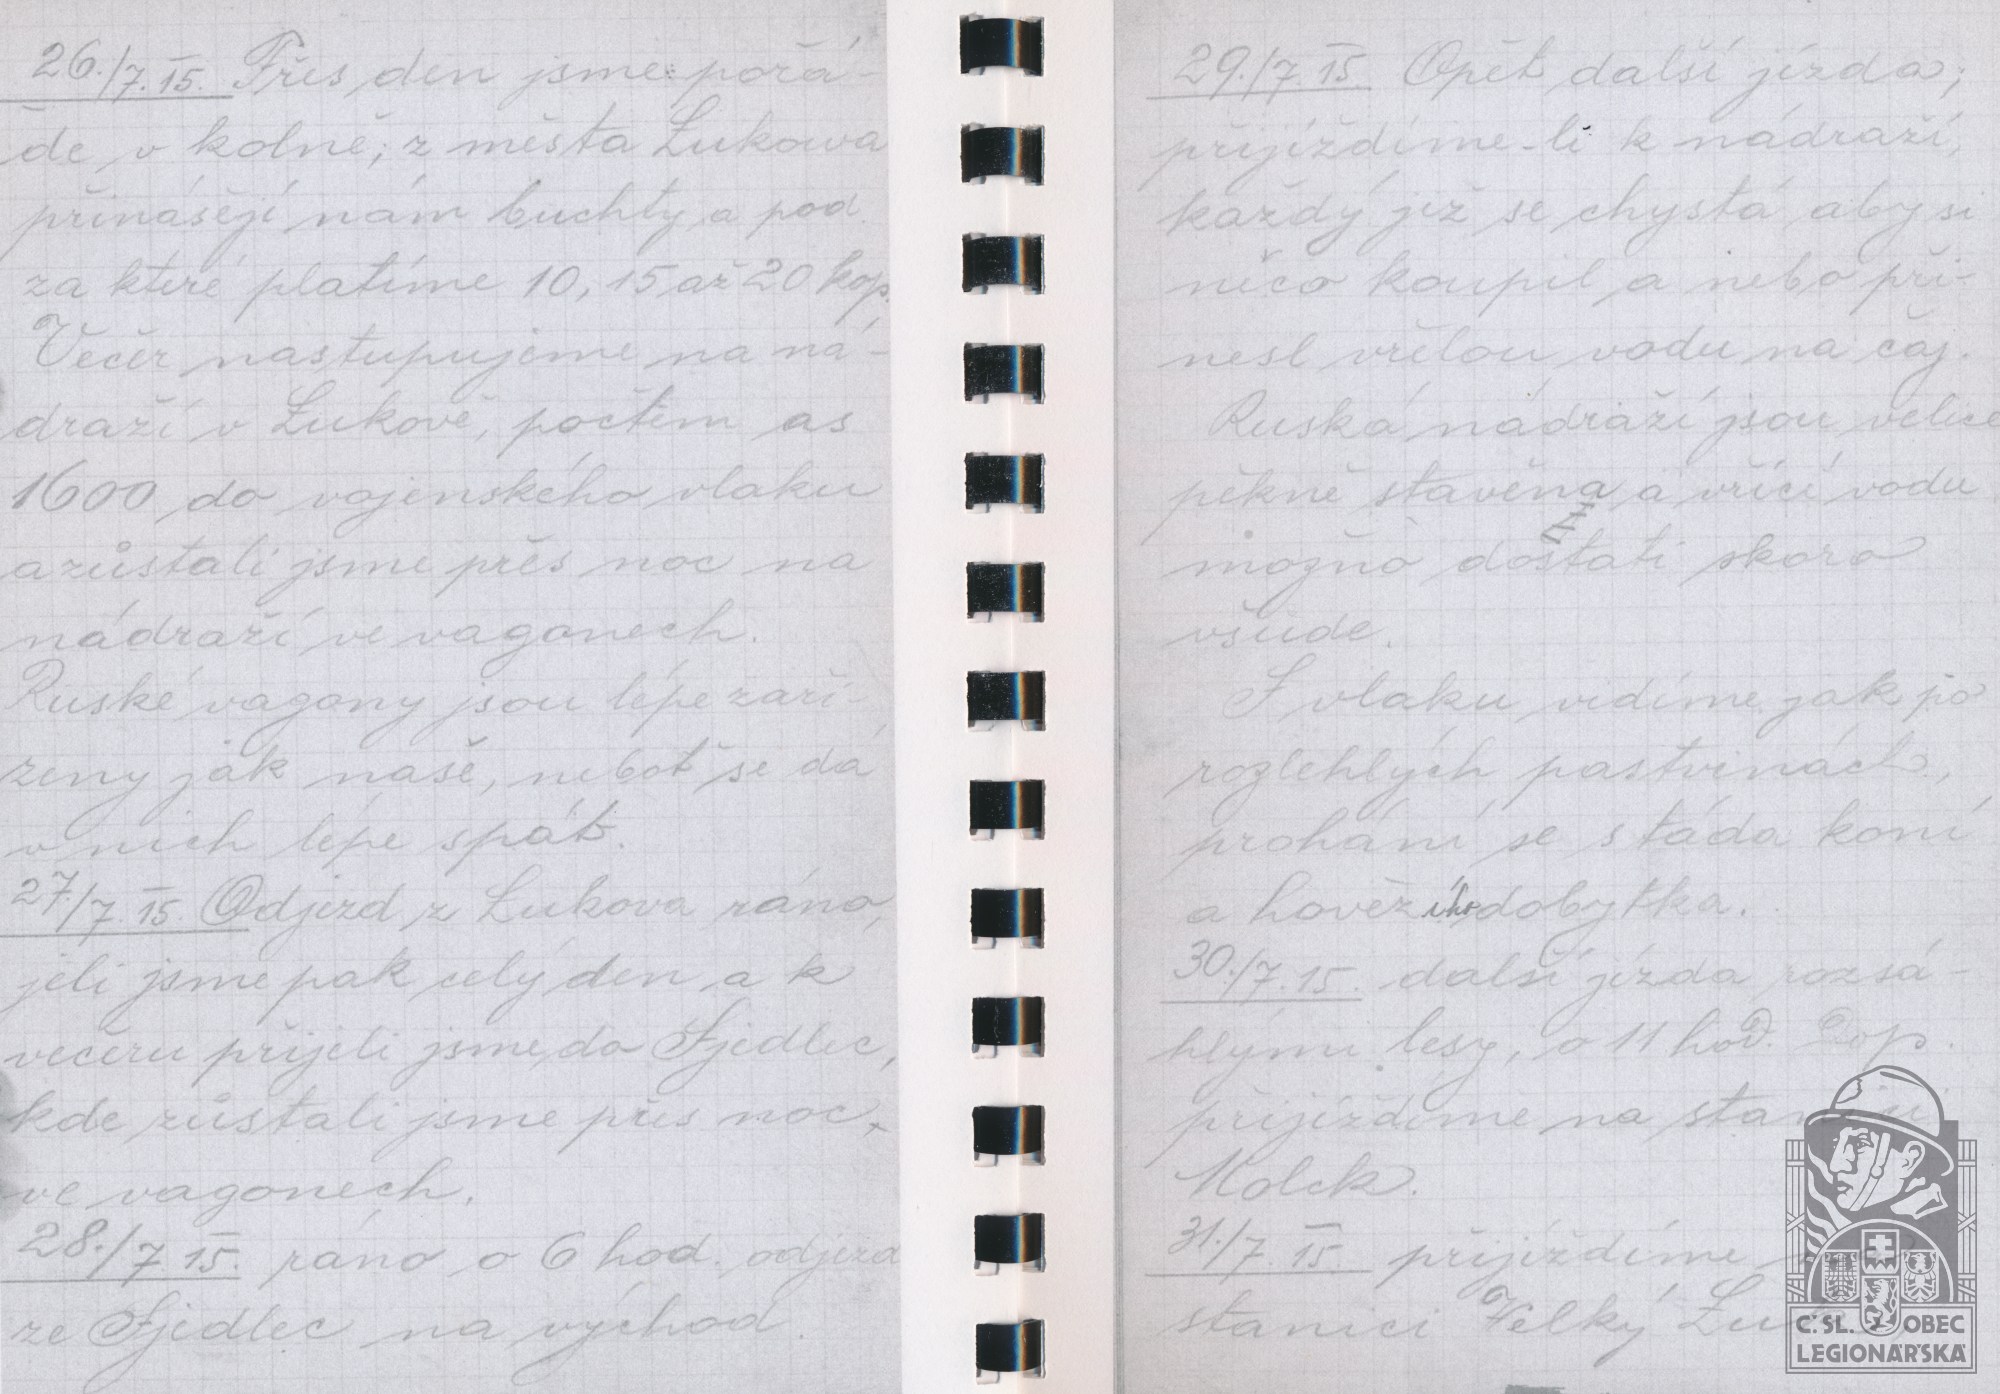 26./7. 15. Přes den jsme pořá-
dě v kolně; z města Lukowa
přinášejí nám buchty a pod.
za které platíme 10, 15 až 20 kop.
Večer nastupujeme na ná-
draží v Lukově, počtem as
1600 do vojenského vlaku
a zůstali jsme přes noc na
nádraží ve vagonech.
Ruské vagony jsou lépe zaří-
zeny jak naše, neboť se dá
v nich lépe spát.
27/7. 15. Odjezd z Lukova ráno,
jeli jsme pak celý den a k
večeru přijeli jsme do Sjedlec,
kde zůstali jsme přes noc
ve vagonech.
28./7 15. ráno o 6 hod. odjezd
ze Sjedlec na východ.
29./7. 15. Opět další jízda;
přijíždíme-li k nádraží,
každý již se chystá aby si
něco koupil a nebo při-
nesl vřelou vodu na čaj.
Ruská nádraží jsou velice
pěkně stavěna a vřící vodu
možno dostati skoro
všude.
S vlaku vidíme jak po
rozlehlých pastvinách,
prohání se stáda koní
a hovězího dobytka.
30./7. 15. další jízda rozsá-
hlými lesy, o 11 hod. Dop.
přijíždíme na stanici
Molck.
31./7. 15. přijíždíme
stanici Velký
Č. SL. OBEC
LEGIONÁŘSKÁ